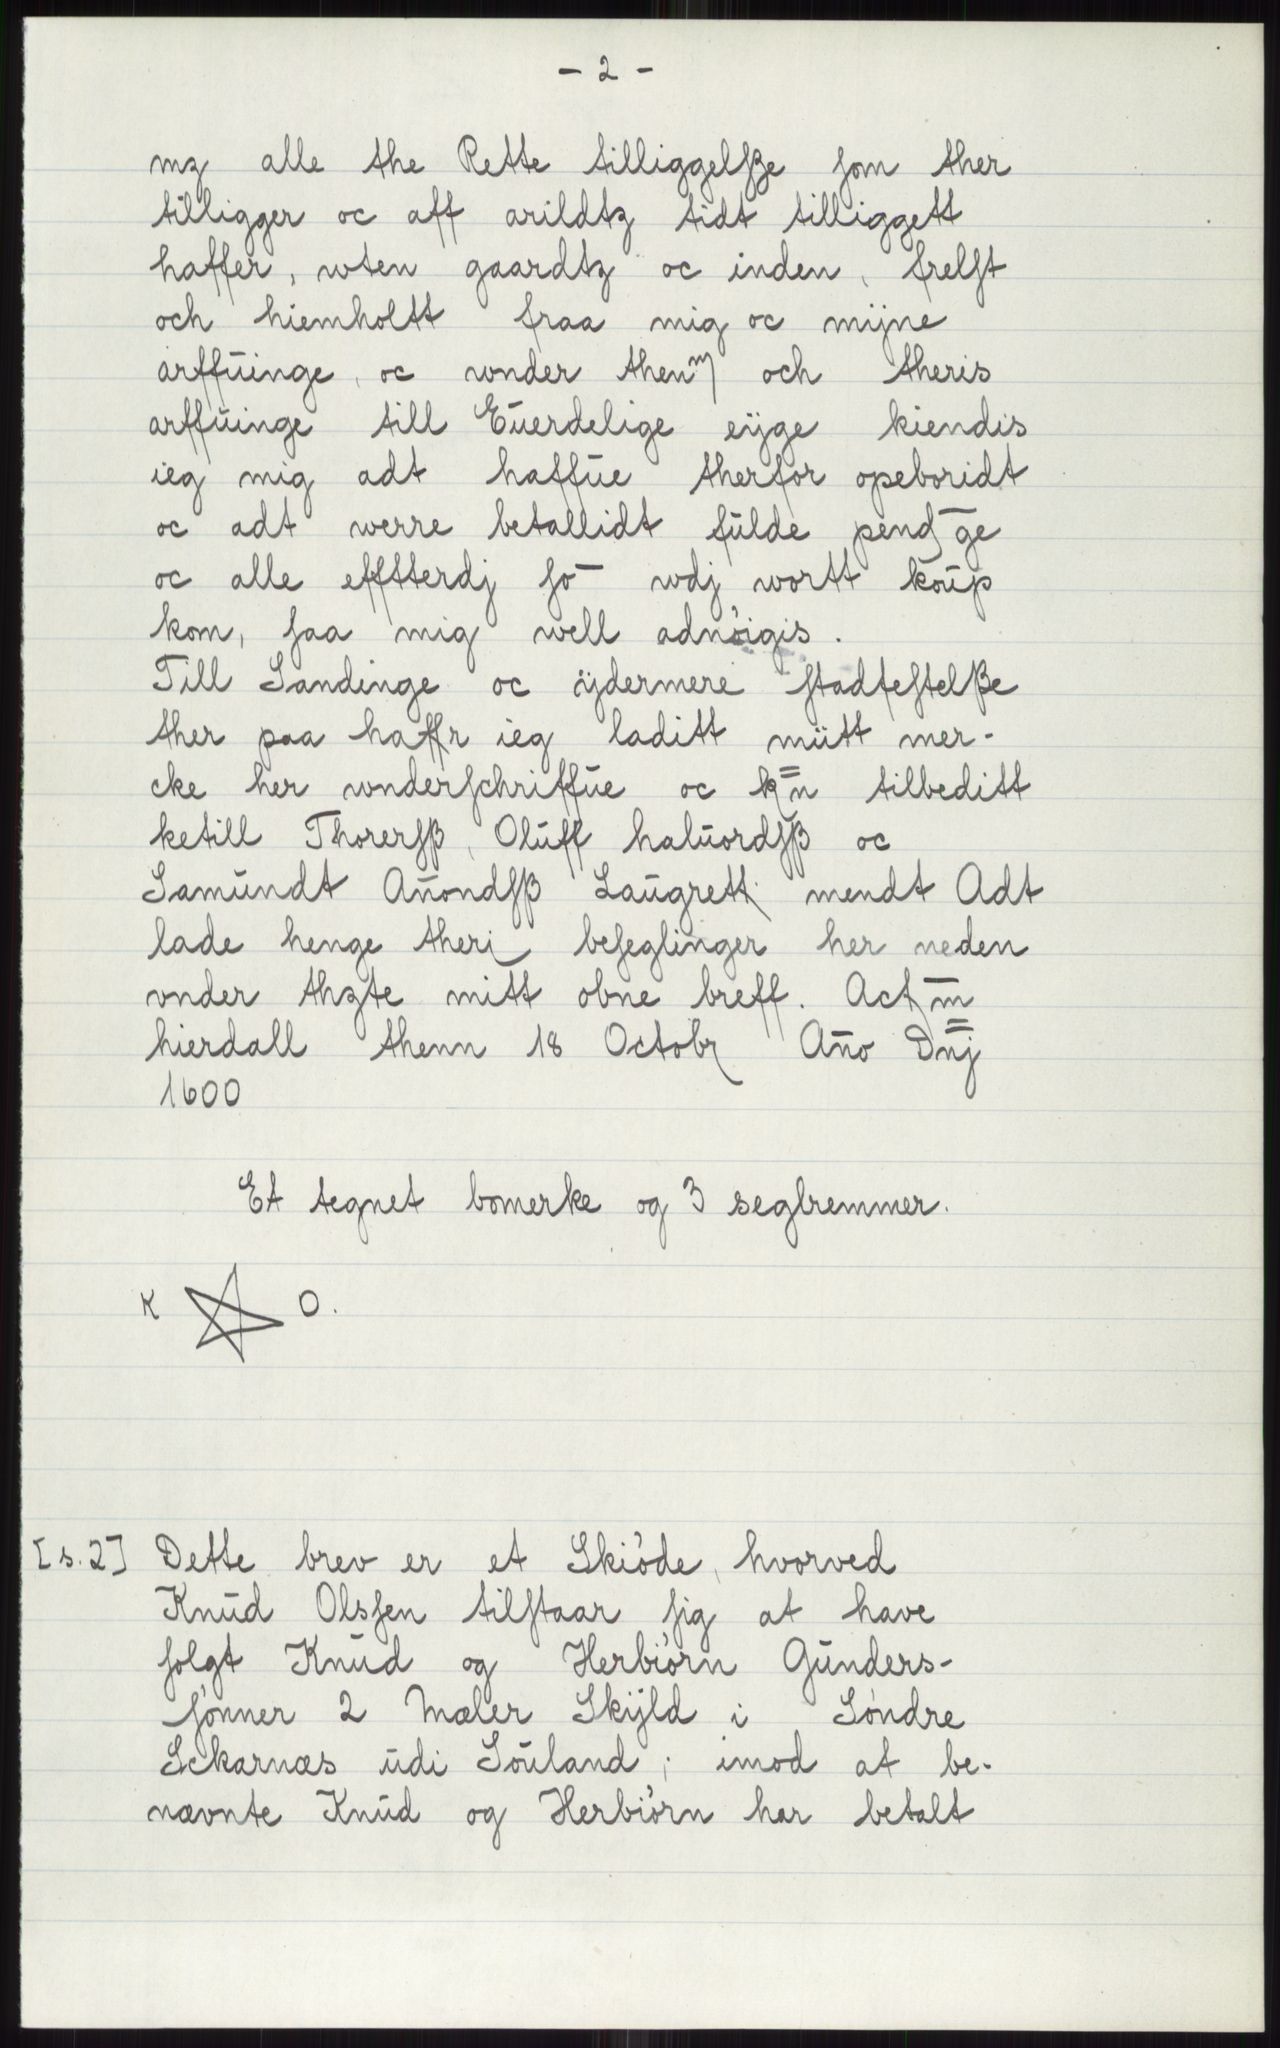 - 2 -
mz alle the Rette tilliggelsße som ther
tilligger oc aff arildtz tidt tilliggett
haffer, wten gaardtz oc inden, frelst
och hiemholtt fraa mig oc mijne
arffuinge, oc wnder thenm och theris
arffuinge till Euerdelige eyge kiendis
ieg mig adt haffue therfor opeboridt
oc adt werre betallidt fulde pend ge
oc alle efftterdj so wdj wortt koup
kom, saa mig well adnöigis.
Till Sandinge oc ydermere stadfestelße
ther paa haffr ieg laditt mitt mer-
cke her wnderschriffue oc kn tilbeditt
ketill Thorersß, Oluff haluordsß oc
Samundt Añondsß Laugrett mendt Adt
lade henge theri beseglinger her neden
vnder thzte mitt obne breff. Act m
hierdall thenn 18 Octobr Año Dnj
1600
Et tegnet bomerke og 3 seglremmer.
K O.
[s.2] Dette brev er et Skiöde, hvorved
Knud Olssen tilstaar sig at have
solgt Knud og Herbiörn Gunders-
sönner 2 Mæler Skyld i Söndre
Sckarnæs udi Souland; imod at be-
nævnte Knud og Herbiörn har betalt